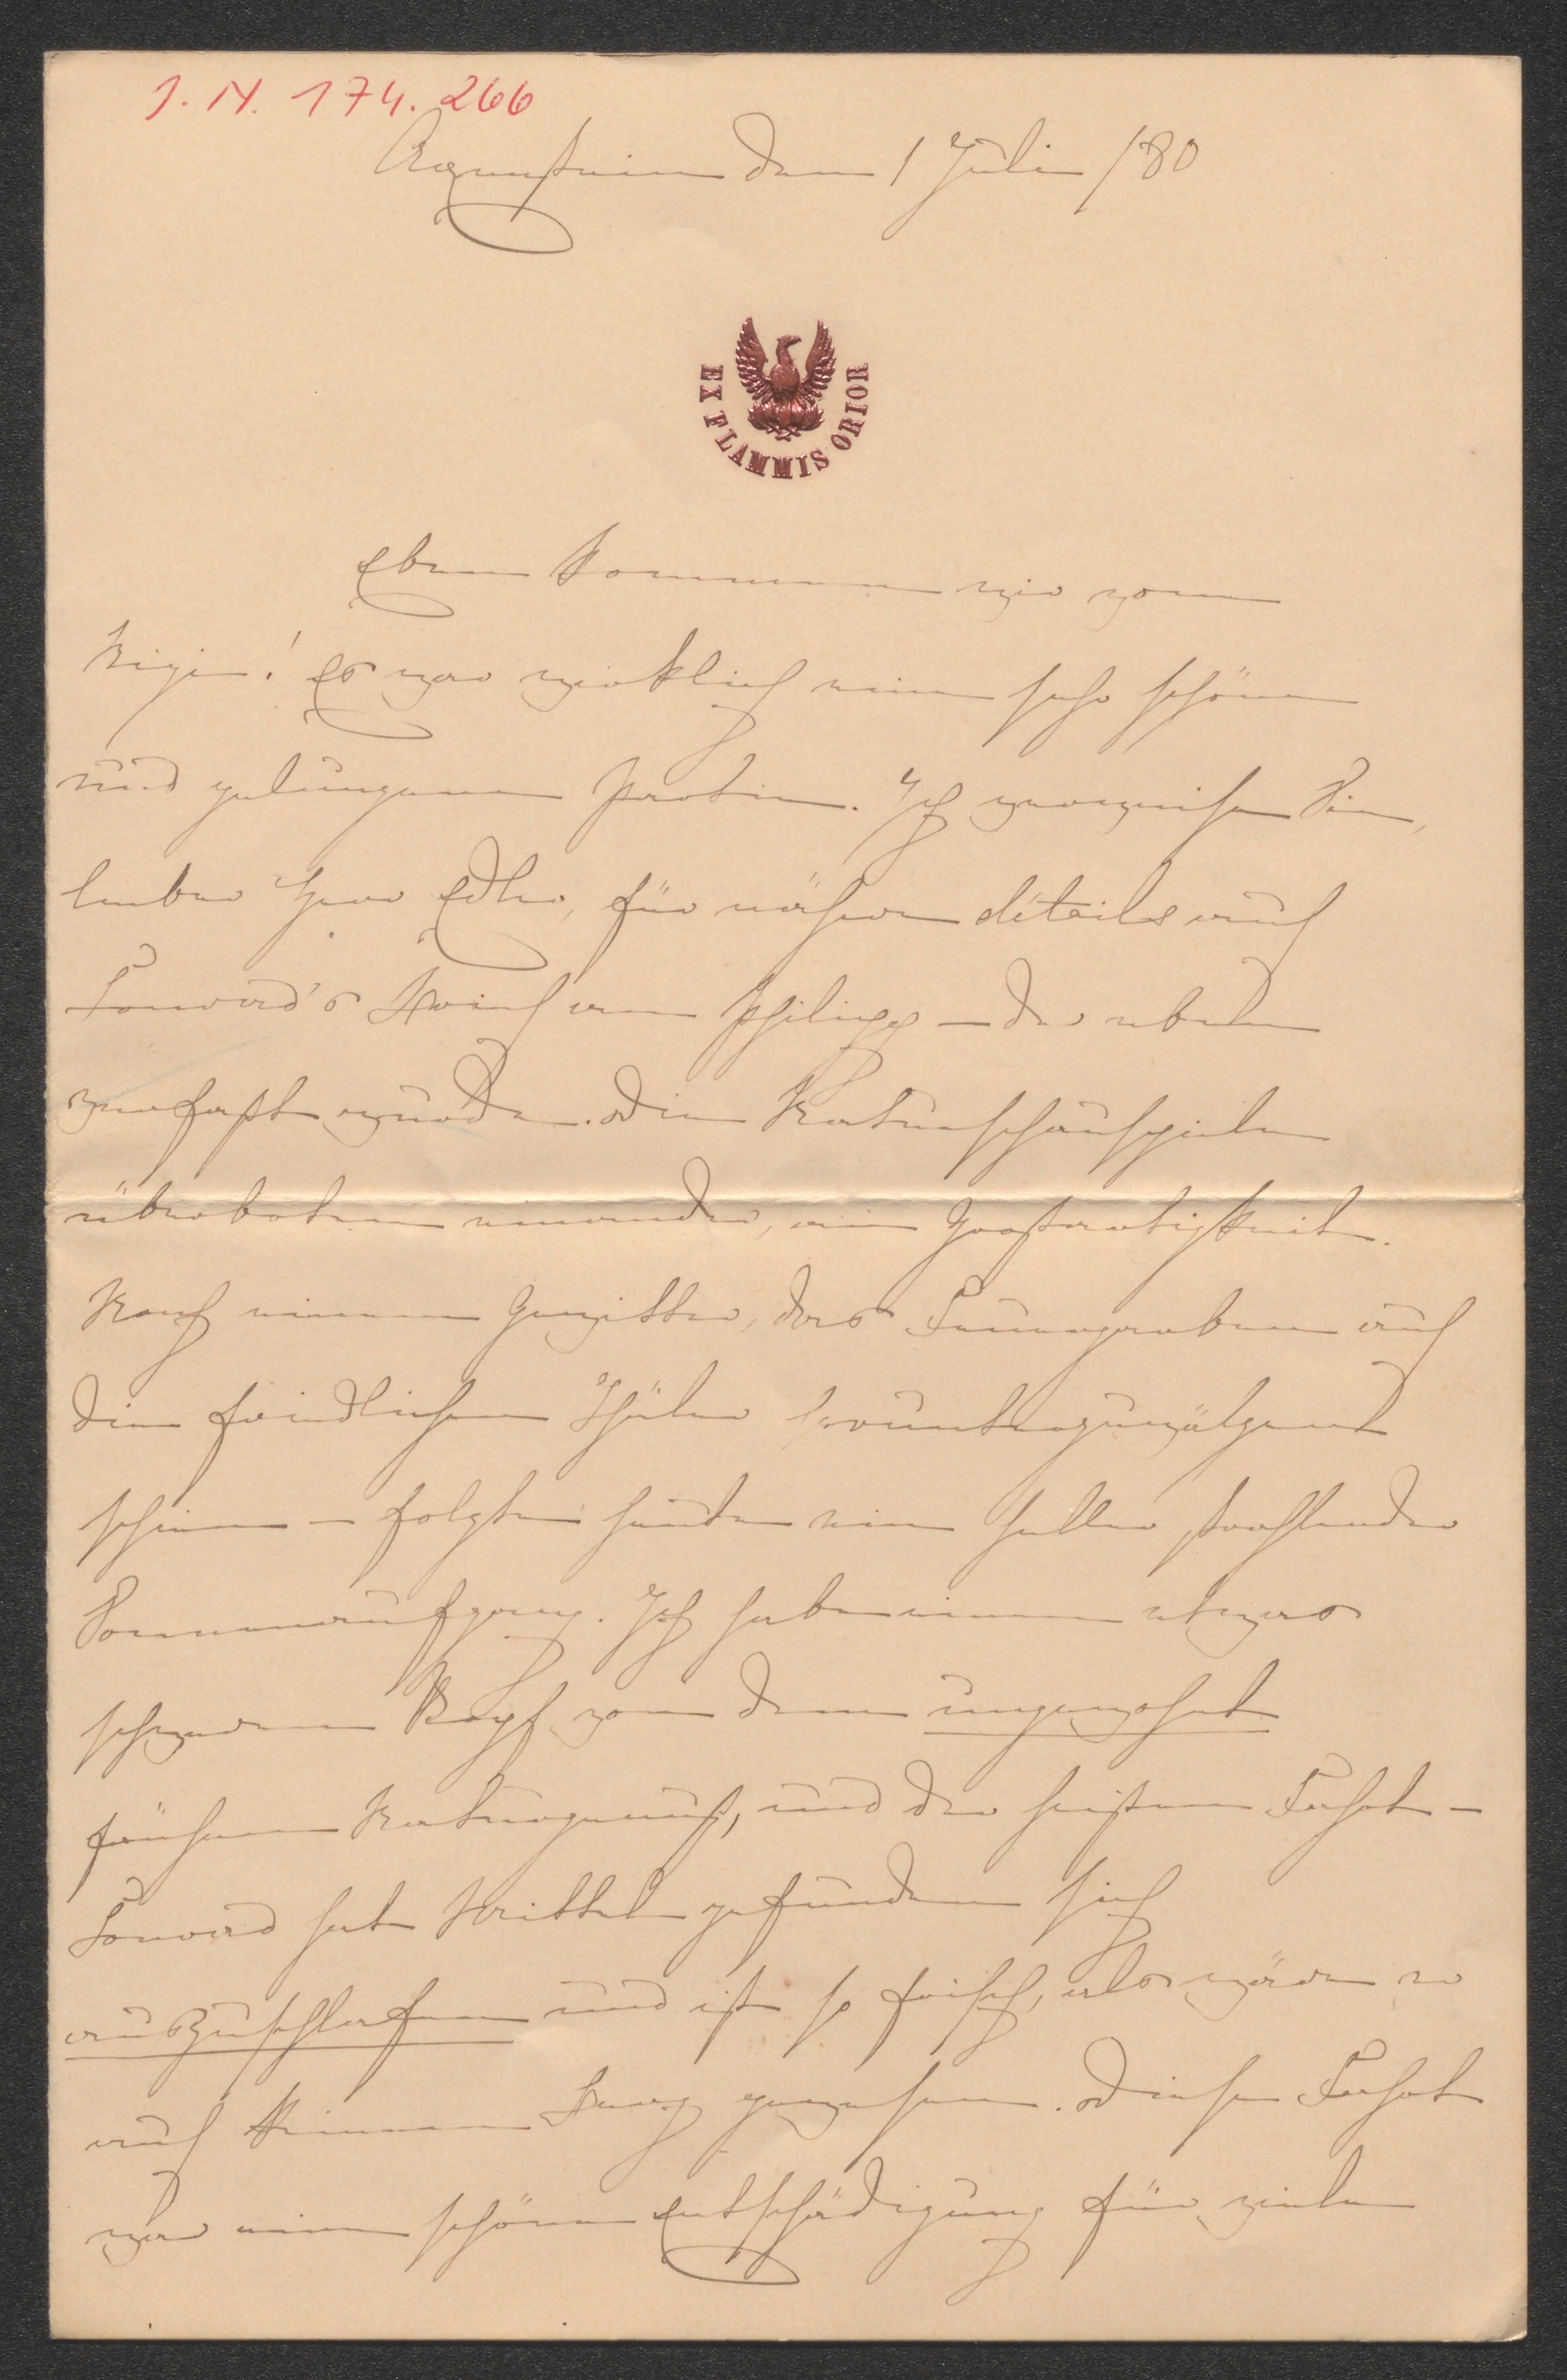 J. N. 174.266
Aegenstein den 1 Juli /80
EX FLAMMIS ORIOR
Eben kommen wir vom
Rigi! Es war wirklich eine sehr schöne
und gelungene Partie. Ich verweise Sie,
lieber Herr Edler, für nähere détails auf
Konrad's Brief an Philipp – der eben
verfasst wurde. Die Naturschauspiele
überboten einander, an Großartigkeit.
Nach einem Gewitter, das Feuergarben auf
die friedlichen Thäler herunterzuwälzend
schien – folgte heute ein heller strahlender
Sonnenaufgang. Ich habe einen etwas
schweren Kopf von dem ungewohnt
frühen Naturgenuß, und der heißen Fahrt –
Konrad hat Mittel gefunden sich
auszuschlafen und ist so frisch, als wäre er
auf keinem Berg gewesen. Diese Fahrt
war eine schöne Entschädigung für viele